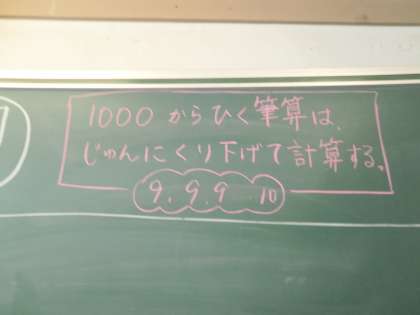 1000からひく筆算は、
じゅんにくり下げて計算する。
9.9.9 10